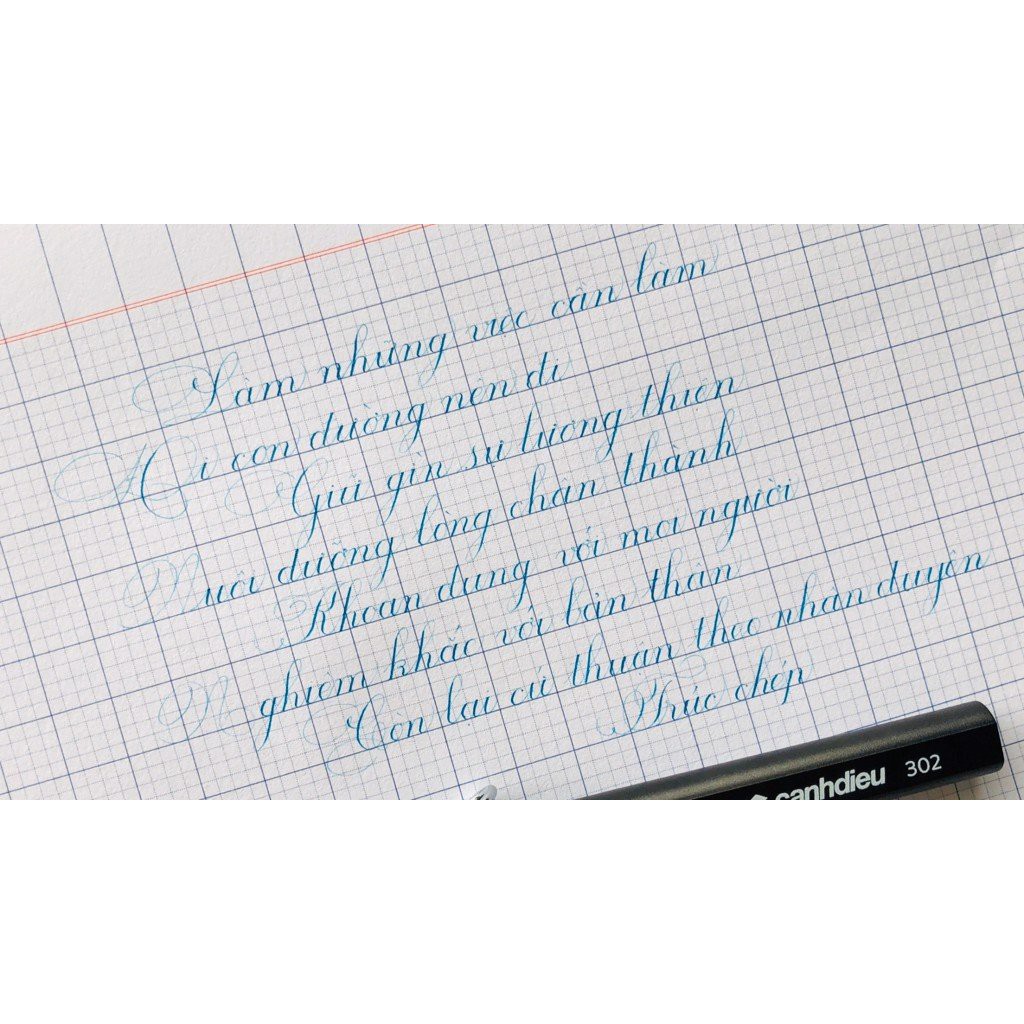 Làm những việc cần làm
Đi con đường nên đi
Giữ gìn sự lương thiện
Nuôi dưỡng lòng chân thành
Khoan dung với mọi người
Nghiêm khắc với bản thân
Còn lại cứ thuận theo nhân duyên
Trúc chép
canhdieu 302